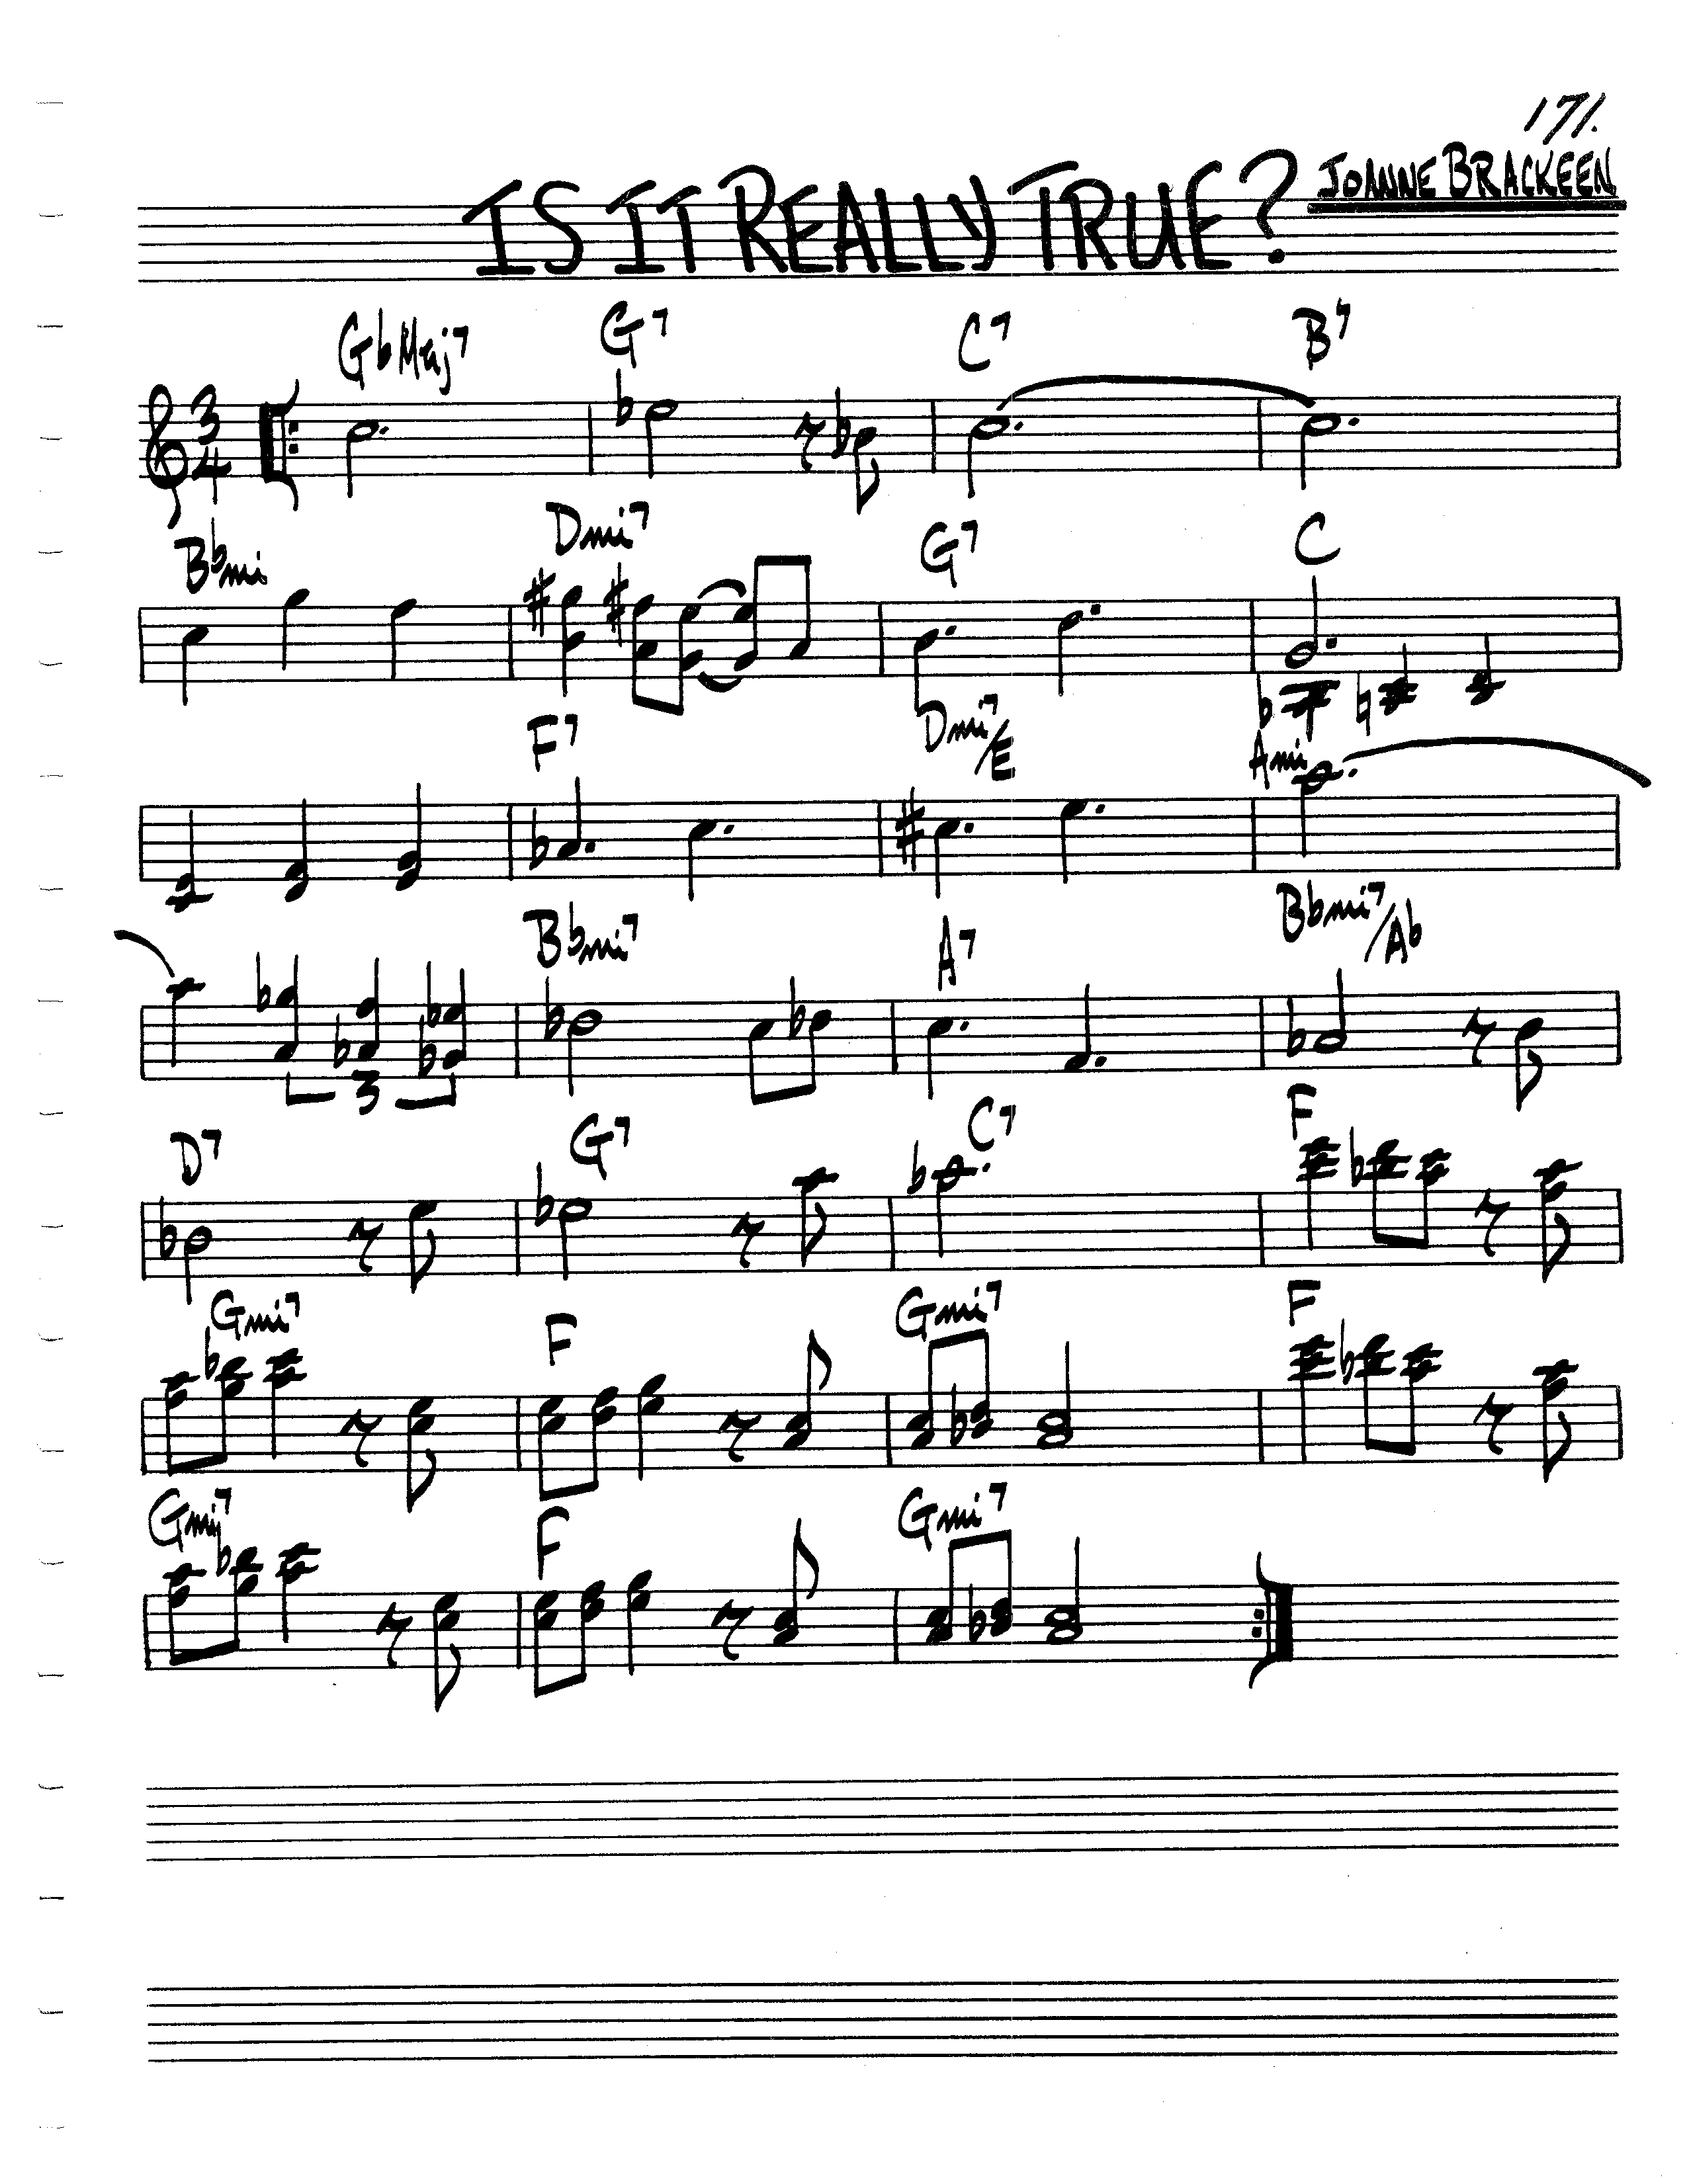 171.
IS IT REALLY TRUE? JOANNE BRACKEEN
GbMaj7 G7 C7 B7
3
4
Bbmi Dmi7 G7 C
F7 Dmi7/E Ami
Bbmi7 A7 Bbmi7/Ab
3
D7 G7 C7 F
Gmi7 F Gmi7 F
Gmi7 F Gmi7